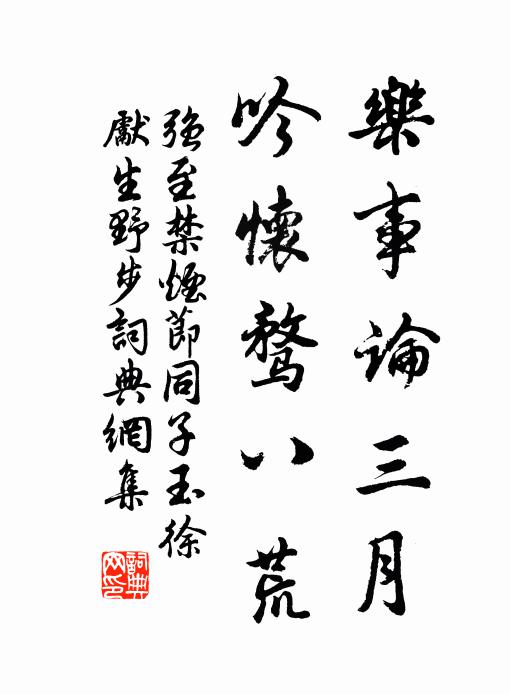 樂事論三月
吟懷騖八荒
強至禁煙節同子玉徐
獻生野步詞典網集
詞典網印